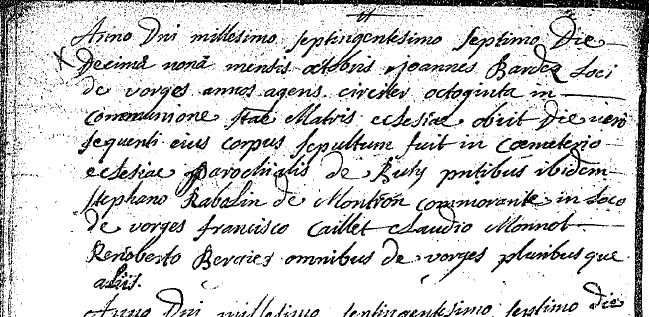 Anno Dni millesimo septingentesimo septimo Die
Decima nonâ mensis octobris Joannes Bardez Loci
de vorges annos agens circiter octoginta in
communione stae Matris eclesiae obiit Die vero
sequenti eius corpus sepultum fuit in Coemeterio
eclesiae parochialis de Busy pntibus ibidem
stephano Rabolin de Montron commorante in Loco
de vorges francisco Caillet claudio Monnot
Renoberto Bercier omnibus de vorges pluribusque
aliis.
Anno Dni millesimo septingentesimo septimo die